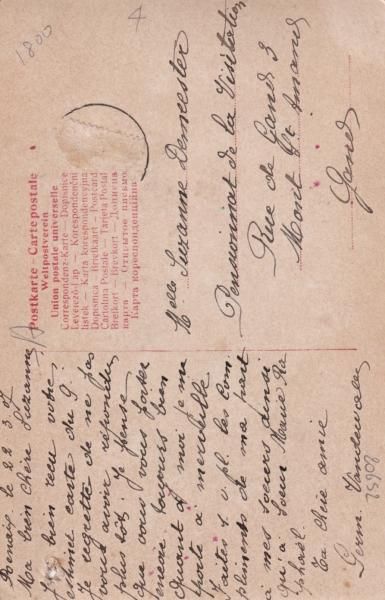 1800
Postkarte – Carte postale
Weltpostverein
Union postale universelle
Correspondenz-Karte – Dopisnice
Levelező-Lap – Korespondenční
lístek – Karta korespondencyjna
Dopisnica – Briefkaart – Postcard
Cartolina Postale – Tarjeta Postal
Brefkort – Brevkort – Дописна
карта – Открытое письмо
Карта кореспонденційна
Melle Suzanne Demeester
Pensionnat de la Visitation
Rue de Gand 3
Mont St Amand
Gand
le 22 3 07
Ma bien chère Suzanne
J'ai bien reçu votre
estimée carte du 9.
Je regrette de ne pas
vous avoir répondu
plus tôt. Je pense
que vous vous portez
encore toujours bien
Quant à moi je me
porte à merveille
Faites s. v. pl. les com
pliments de ma part
à mes soeurs ainsi
qu'à Soeur Marie Ra
phaël.
Ta chère amie
Germ.
25908